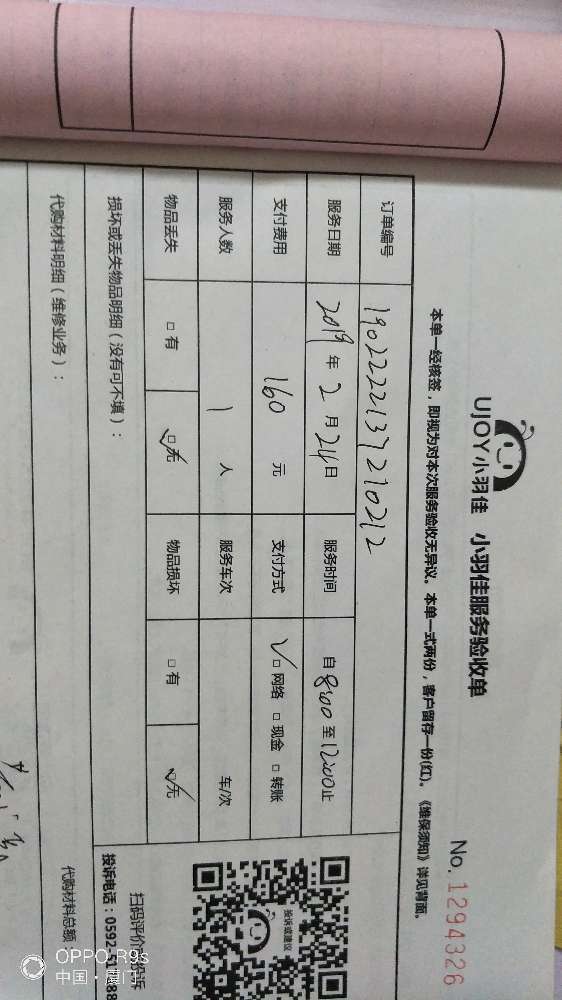 UJOY小羽佳 小羽佳服务验收单
No. 1294326
本单一经核签，即视为对本次服务验收无异议。本单一式两份，客户留存一份(红)。《维保须知》详见背面。
订单编号 1902222137210212
服务日期 2019 年 2 月 24 日 服务时间 自 8:00 至 12:00 止
支付费用 160 元 支付方式 ☑ 网络 □ 现金 □ 转账
服务人数 1 人 服务车次 车/次
物品丢失 □ 有 ☑ 无 物品损坏 □ 有 ☑ 无
损坏或丢失物品明细（没有可不填）：
投诉或建议
扫码评价 投诉
投诉电话：0592
代购材料明细（维修业务）：
代购材料总额
OPPO R9s
中国·厦门